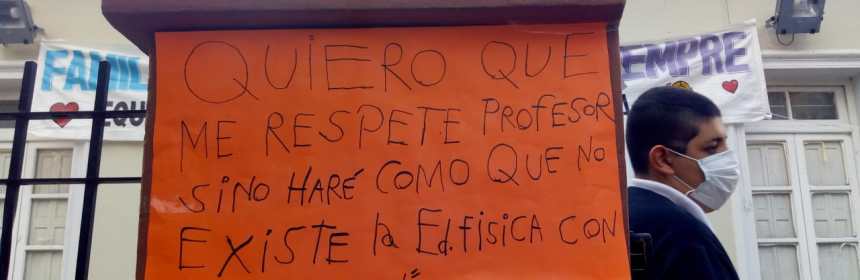 QUIERO QUE
ME RESPETE PROFESOR
SINO HARÉ COMO QUE NO
EXISTE la Ed. fisica CON
FAMIL
EQU
EMPRE